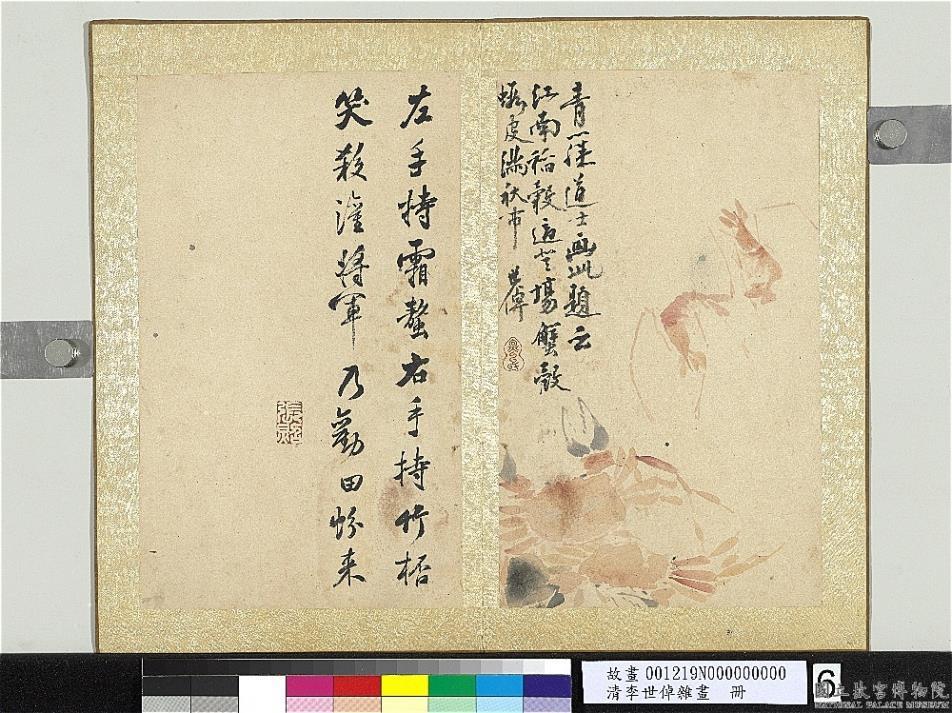 青藤道士画此題云
江南稻穀登場蟹殼
蝦皮滿秋市 世倬
左手持霜螯右手持竹桮
笑殺灌將軍乃勸田蚡来
張照
故畫 001219N000000000
清李世倬雜畫 冊
6
國立故宮博物院
NATIONAL PALACE MUSEUM